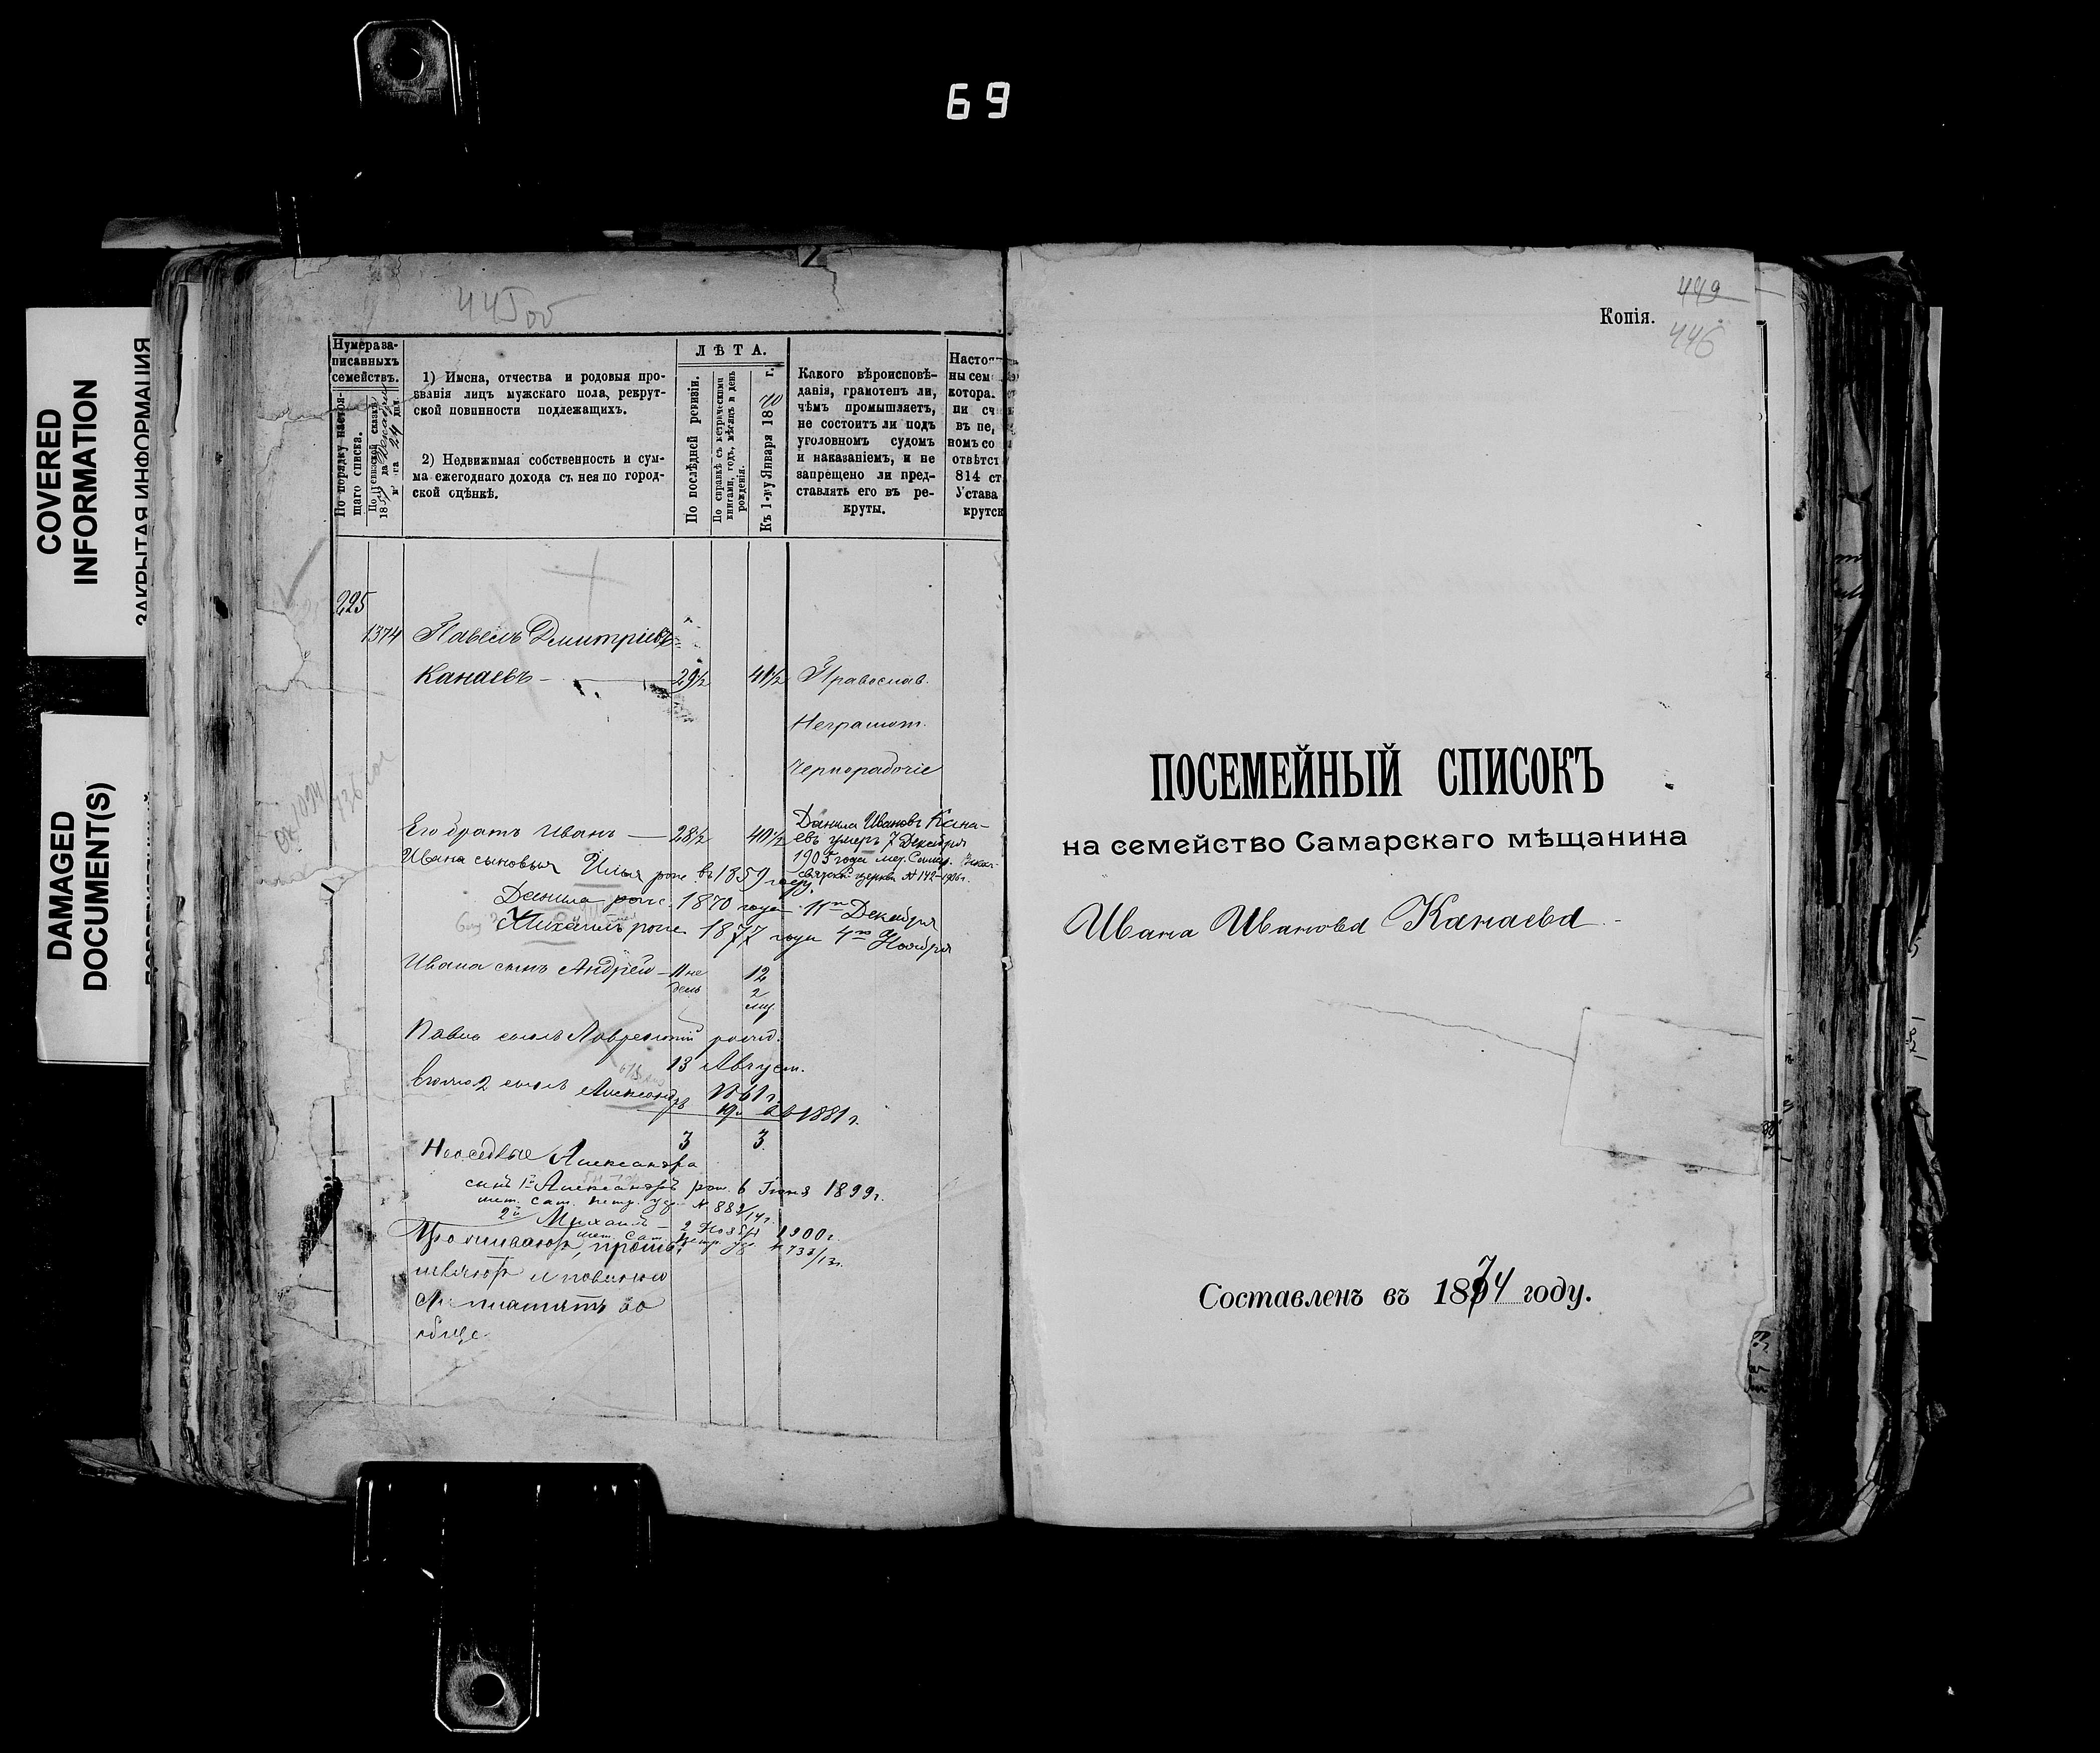 69
COVERED
INFORMATION
ЗАКРЫТАЯ ИНФОРМАЦИЯ
DAMAGED
DOCUMENT(S)
445 об
Нумера за-
писанныхъ
семействъ.
По порядку настоя-
щаго списка.
По ревизской сказкѣ
1) Имена, отчества и родовыя про-
званія лицъ мужскаго пола, рекрут-
ской повинности подлежащихъ.
2) Недвижимая собственность и сум-
ма ежегоднаго дохода съ нея по город-
ской оцѣнкѣ.
ЛѢТА.
По послѣдней ревизіи.
По справкѣ съ метрическими
книгами, годъ, мѣсяцъ и день
рожденія.
Къ 1-му Января 1870 г.
Какого вѣроисповѣ-
данія, грамотенъ ли,
чѣмъ промышляетъ,
не состоитъ ли подъ
уголовномъ судомъ
и наказаніемъ, и не
запрещено ли пред-
ставлять его въ ре-
круты.
Настоя
ны сем
котора
пи сч
въ пе
номъ со
отвѣтст
814 ст
Устава
крутск
225
1374 Павелъ Дмитріевъ
Канаевъ 29½ 41½ Православ.
Неграмот.
Чернорабочіе
Его братъ Иванъ 28½ 40½
Данила Ивановъ Кана-
евъ умеръ 7 Декабря
1905 года
Ивана сыновья Илья рож. въ 1859 году
Данила рож. 1870 года 11го Декабря
Михаилъ рож 1877 года 4го Ноября
Ивана сынъ Андрей 11 не
дель 12
2
мц
Павла сынъ Лаврентій рожд.
13 Август.
1861 г.
его 2 сынъ Александръ 19 л въ 1881 г.
3 3
Неоседлые Александра
сынъ 1й Александръ рож. 6 Іюня 1899 г.
2й Михаилъ 2 Ноября 1900 г.
Проживаютъ, промы
шляютъ и повинно
сти платятъ во
обще
449
446
Копія.
ПОСЕМЕЙНЫЙ СПИСОКЪ
на семейство Самарскаго мѣщанина
Ивана Иванова Канаева
Составленъ въ 1874 году.